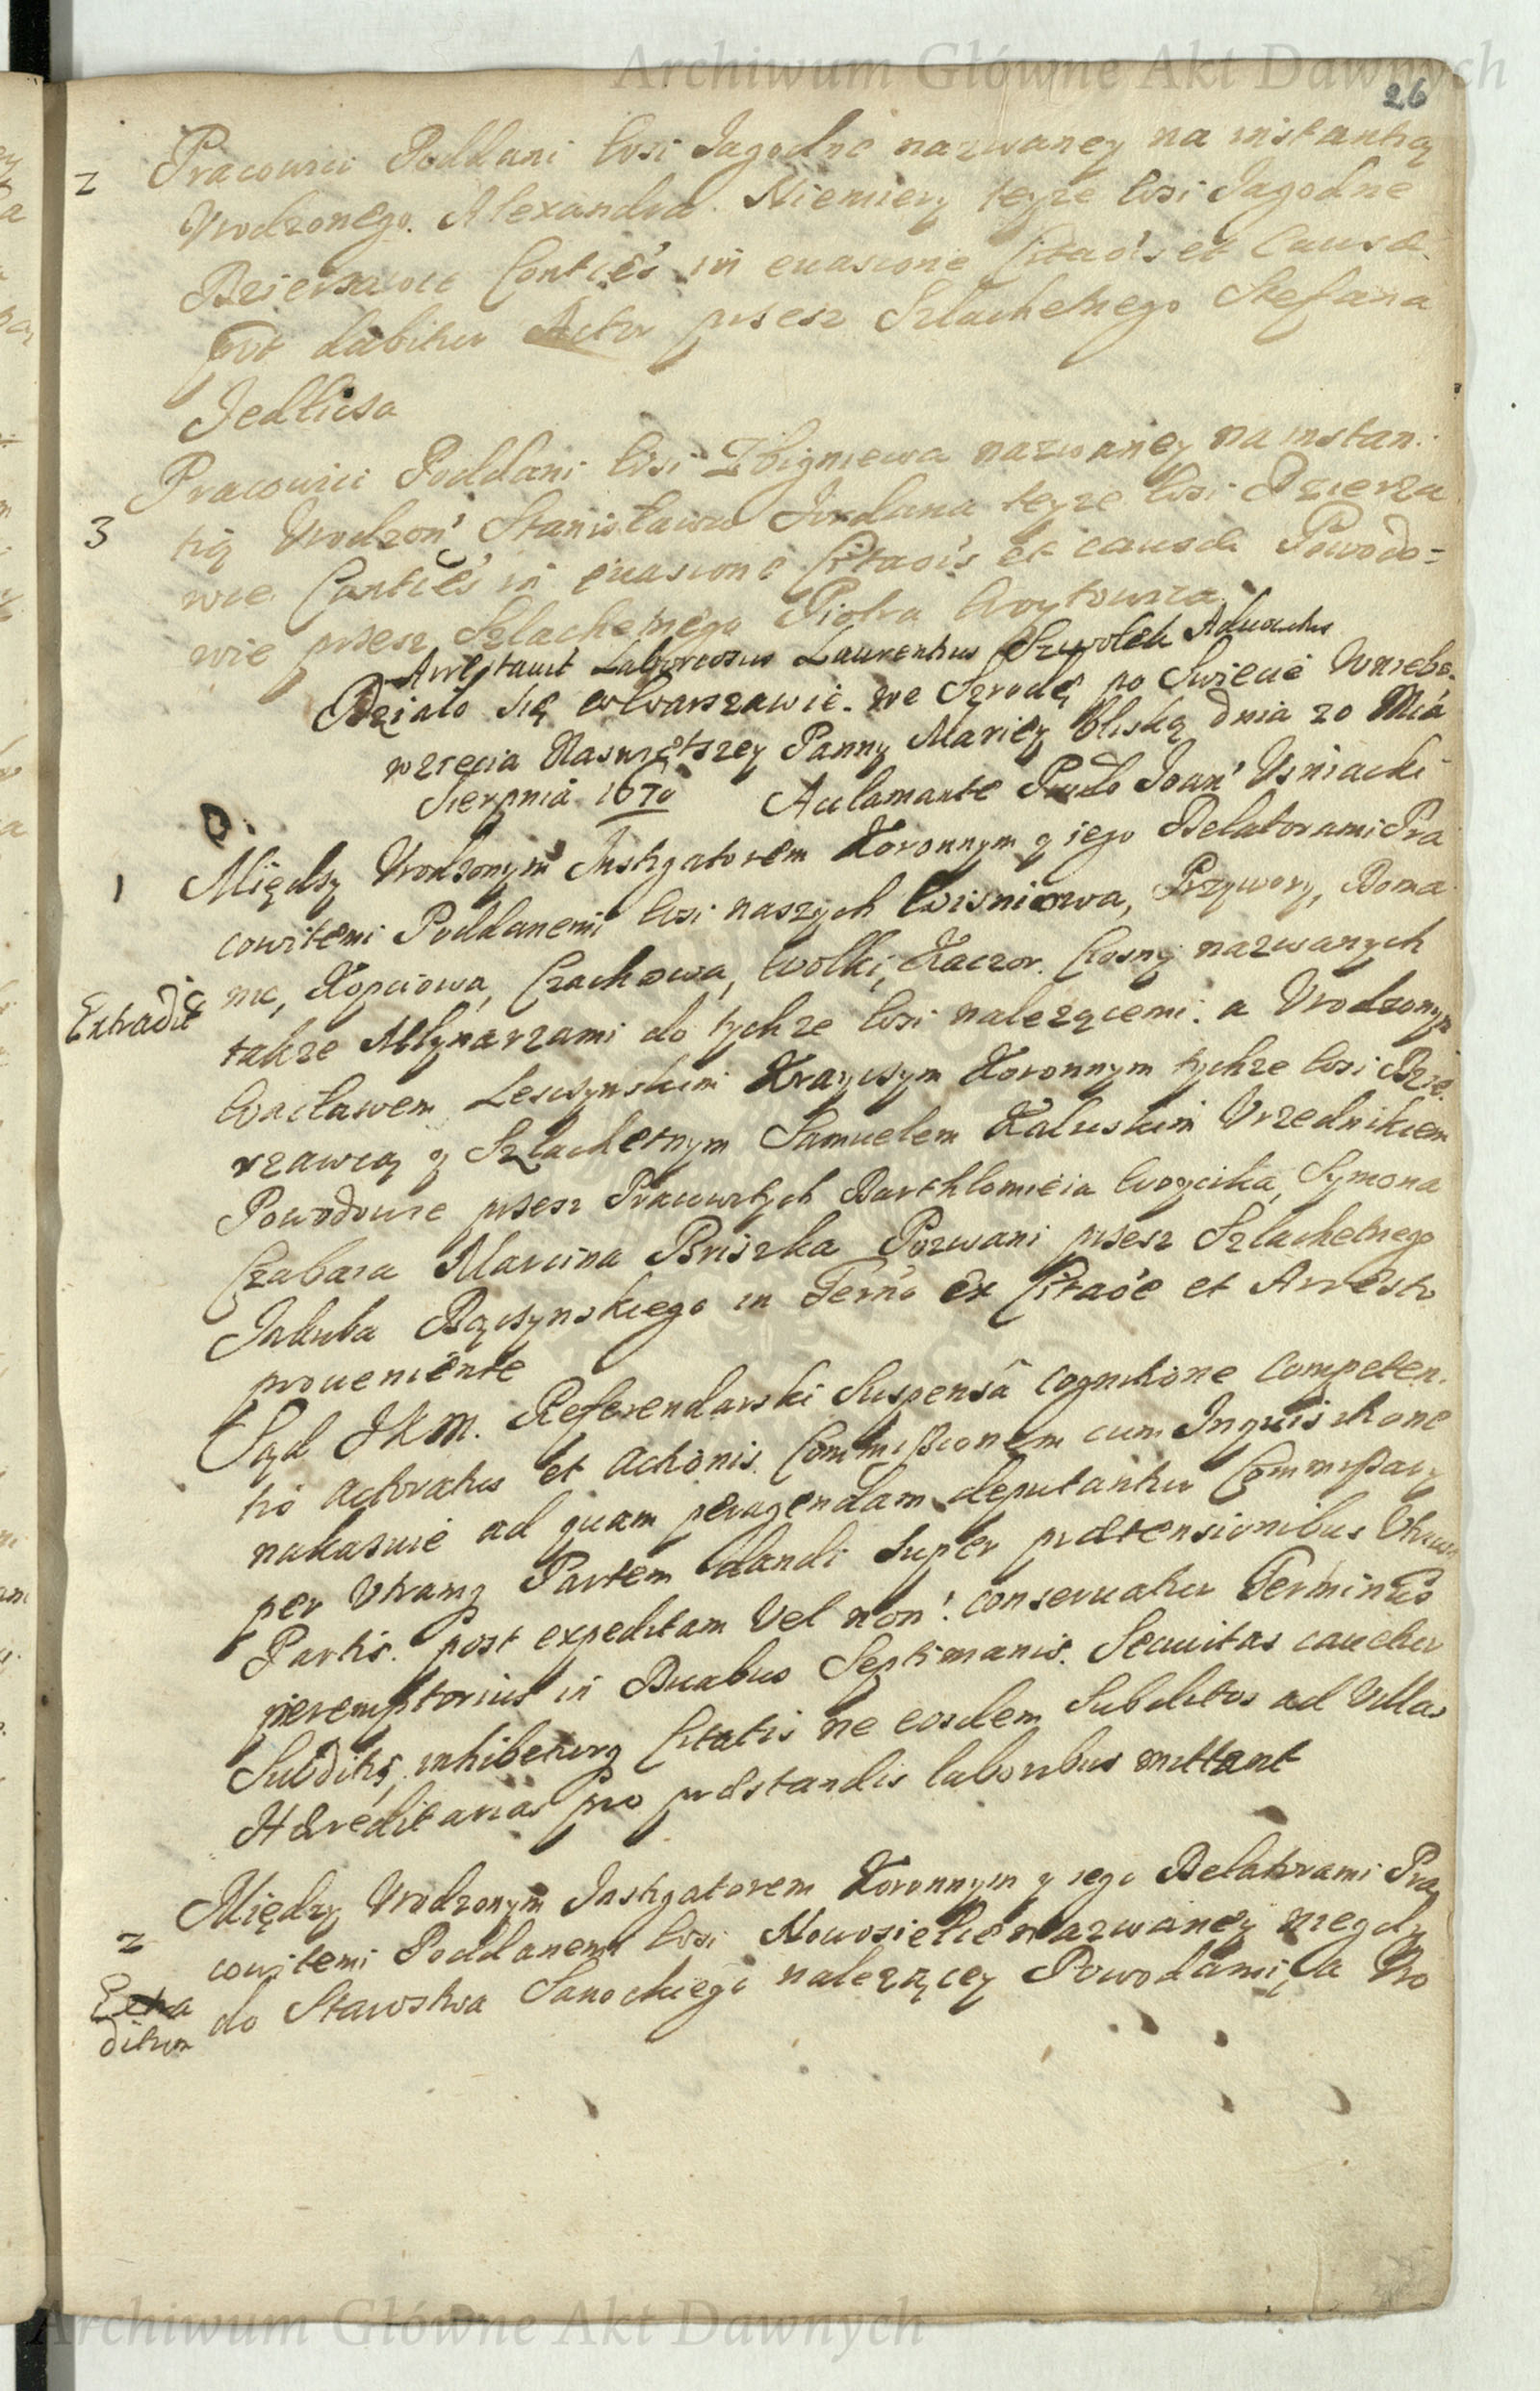 Archiwum Główne Akt Dawnych
26
2 Pracowici Poddani Wsi Jagodne nazwaney na instantią
Vrodzonego Alexandra Niemiery teyze Wsi Jagodne
Dzierzawce Contiẽs in euasione Citaõis et Causæ
put dabitur Actor przesz Szlachetnego Stefana
Jedlicza
Pracowici Poddani Wsi Zbigniewa nazwaney na instan-
3 tią Vrodzon' Stanisława Jordana teyze Wsi Dzierza
wce Contiẽs in euasione Citaõis et causæ Powodo-
wie przesz Szlachetnego Piotra Woytowica
Arrestauit Laboriosus Laurentius Szwolek Aduocatus
Działo się w Warszawie we Szrodę po Swięcie Wniebo-
wzięcia Naswiętszey Panny Mariey bliską dnia 20 Mca
Sierpnia 1670 Acclamante Joan' Vsniacki
1 Między Vrodzonym Instigatorem Koronnym y iego Delatorami Pra
cowitemi Poddanemi Wsi naszych Wisniowa, Przywory, Doma
Extradit nic, Kopciowa, Czachowa, Wolki, Kaczor. Crosny nazwanych
takze Młynarzami do tychze Wsi nalezącemi. a Vrodzonym
Wacławem Lesczynskim Krayczym Koronnym tychze Wsi Dzie
rzawcą y Szlachetnym Samuelem Kaluskim Vrzednikiem
Powodowie przesz Pracowitych Barthlomieia Woycika, Symona
Czabaia Marcina Briszka Pozwani przesz Szlachetnego
Jakuba Bączynskiego in Termõ ex Citaõe et Arresto
proueniente
Sąd JKM. Referendarski Suspensâ cognitione Competen-
tiæ actoratus et actionis. Commissionem cum Inquisitione
nakazuie ad quam peragendam deputantur Commissarij
per Vtramq Partem dandi super prætensionibus Vtriusq
Partis. post expeditam Vel non. conseruatur Terminus
peremptorius in Duabus Septimanis. Securitas cauetur
Subditis, inhibeturq Citatis ne eosdem Subditos ad Villas
Hæreditarias pro præstandis laboribus mittant
Między Vrodzonym Instigatorem Koronnym y iego Delatorami Pra
2 cowitemi Poddanemi Wsi Nowosielce nazwaney niegdy
Extra do Starostwa Sanockiego nalezącey Powodami, a Vro
ditum
Archiwum Główne Akt Dawnych